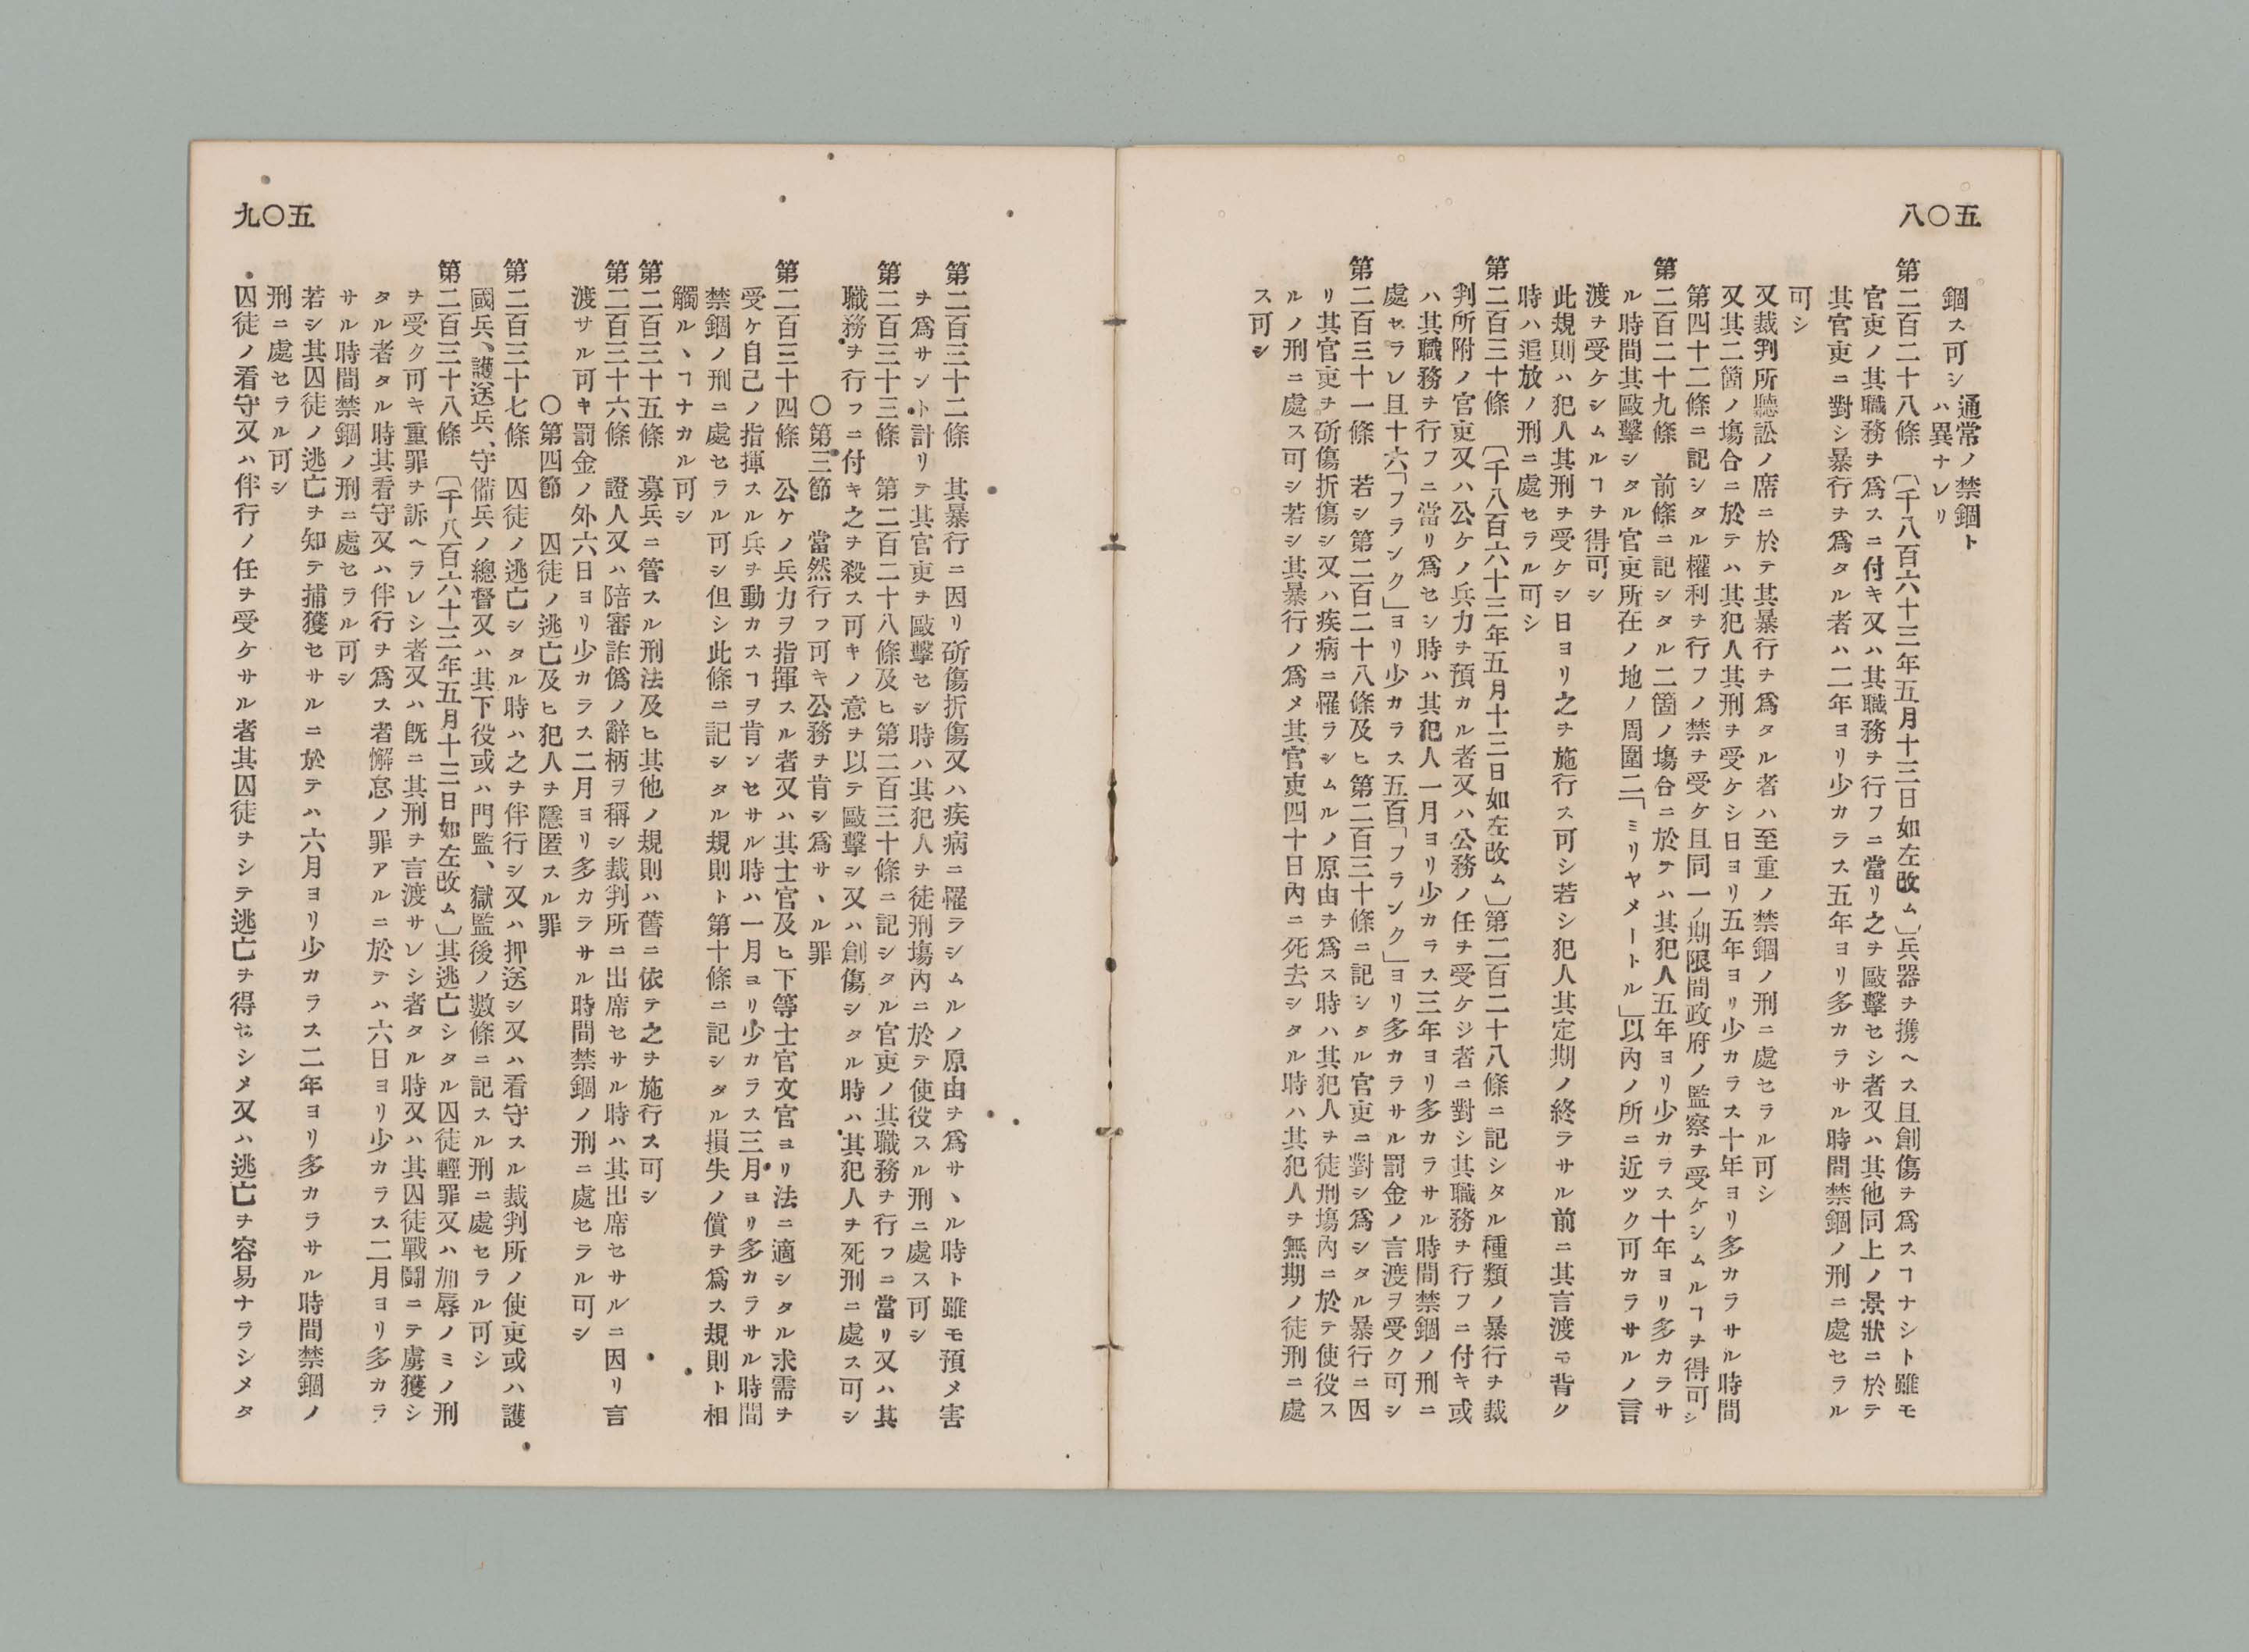 五〇八
錮ス可シ通常ノ禁錮トハ異ナレリ
第二百二十八條　〔千八百六十三年五月十三日如左改ム〕兵器ヲ携ヘス且創傷ヲ爲スヿナシト雖モ
官吏ノ其職務ヲ爲スニ付キ又ハ其職務ヲ行フニ當リ之ヲ毆擊セシ者又ハ其他同上ノ景狀ニ於テ
其官吏ニ對シ暴行ヲ爲タル者ハ二年ヨリ少カラス五年ヨリ多カラサル時間禁錮ノ刑ニ處セラル
可シ
又裁判所聽訟ノ席ニ於テ其暴行ヲ爲タル者ハ至重ノ禁錮ノ刑ニ處セラル可シ
又其二箇ノ塲合ニ於テハ其犯人其刑ヲ受ケシ日ヨリ五年ヨリ少カラス十年ヨリ多カラサル時間
第四十二條ニ記シタル權利ヲ行フノ禁ヲ受ケ且同一ノ期限間政府ノ監察ヲ受ケシムルヿヲ得可シ
第二百二十九條　前條ニ記シタル二箇ノ塲合ニ於テハ其犯人五年ヨリ少カラス十年ヨリ多カラサ
ル時間其毆擊シタル官吏所在ノ地ノ周圍二「ミリヤメートル」以內ノ所ニ近ツク可カラサルノ言
渡ヲ受ケシムルヿヲ得可シ
此規則ハ犯人其刑ヲ受ケシ日ヨリ之ヲ施行ス可シ若シ犯人其定期ノ終ラサル前ニ其言渡モ背ク
時ハ追放ノ刑ニ處セラル可シ
第二百三十條　〔千八百六十三年五月十三日如左改ム〕第二百二十八條ニ記シタル種類ノ暴行ヲ裁
判所附ノ官吏又ハ公ケノ兵力ヲ預カル者又ハ公務ノ任ヲ受ケシ者ニ對シ其職務ヲ行フニ付キ或
ハ其職務ヲ行フニ當リ爲セシ時ハ其犯人一月ヨリ少カラス三年ヨリ多カラサル時間禁錮ノ刑ニ
處セラレ且十六「フランク」ヨリ少カラス五百「フランク」ヨリ多カラサル罰金ノ言渡ヲ受ク可シ
第二百三十一條　若シ第二百二十八條及ヒ第二百三十條ニ記シタル官吏ニ對シ爲シタル暴行ニ因
リ其官吏ヲ斫傷折傷シ又ハ疾病ニ罹ラシムルノ原由ヲ爲ス時ハ其犯人ヲ徒刑塲內ニ於テ使役ス
ルノ刑ニ處ス可シ若シ其暴行ノ爲メ其官吏四十日內ニ死去シタル時ハ其犯人ヲ無期ノ徒刑ニ處
ス可シ
五〇九
第二百三十二條　其暴行ニ因リ斫傷折傷又ハ疾病ニ罹ラシムルノ原由ヲ爲サヽル時ト雖モ預メ害
ヲ爲サント計リテ其官吏ヲ毆擊セシ時ハ其犯人ヲ徒刑塲內ニ於テ使役スル刑ニ處ス可シ
第二百三十三條　第二百二十八條及ヒ第二百三十條ニ記シタル官吏ノ其職務ヲ行フニ當リ又ハ其
職務ヲ行フニ付キ之ヲ殺ス可キノ意ヲ以テ毆擊シ又ハ創傷シタル時ハ其犯人ヲ死刑ニ處ス可シ
〇第三節　當然行フ可キ公務ヲ肯シ爲サヽル罪
第二百三十四條　公ケノ兵力ヲ指揮スル者又ハ其士官及ヒ下等士官文官ヨリ法ニ適シタル求需ヲ
受ケ自己ノ指揮スル兵ヲ動カスヿヲ肯ンセサル時ハ一月ヨリ少カラス三月ヨリ多カラサル時間
禁錮ノ刑ニ處セラル可シ但シ此條ニ記シタル規則ト第十條ニ記シタル損失ノ償ヲ爲ス規則ト相
觸ルヽヿナカル可シ
第二百三十五條　募兵ニ管スル刑法及ヒ其他ノ規則ハ舊ニ依テ之ヲ施行ス可シ
第二百三十六條　證人又ハ陪審詐僞ノ辭柄ヲ稱シ裁判所ニ出席セサル時ハ其出席セサルニ因リ言
渡サル可キ罰金ノ外六日ヨリ少カラス二月ヨリ多カラサル時間禁錮ノ刑ニ處セラル可シ
〇第四節　囚徒ノ逃亡及ヒ犯人ヲ隱匿スル罪
第二百三十七條　囚徒ノ逃亡シタル時ハ之ヲ伴行シ又ハ押送シ又ハ看守スル裁判所ノ使吏或ハ護
國兵、護送兵、守備兵ノ總督又ハ其下役或ハ門監、獄監後ノ數條ニ記スル刑ニ處セラル可シ
第二百三十八條　〔千八百六十三年五月十三日如左改ム〕其逃亡シタル囚徒輕罪又ハ加辱ノミノ刑
ヲ受ク可キ重罪ヲ訴ヘラレシ者又ハ旣ニ其刑ヲ言渡サレシ者タル時又ハ其囚徒戰鬪ニテ虜獲シ
タル者タル時其看守又ハ伴行ヲ爲ス者懈怠ノ罪アルニ於テハ六日ヨリ少カラス二月ヨリ多カラ
サル時間禁錮ノ刑ニ處セラル可シ
若シ其囚徒ノ逃亡ヲ知テ捕獲セサルニ於テハ六月ヨリ少カラス二年ヨリ多カラサル時間禁錮ノ
刑ニ處セラル可シ
囚徒ノ看守又ハ伴行ノ任ヲ受ケサル者其囚徒ヲシテ逃亡ヲ得セシメ又ハ逃亡ヲ容易ナラシメタ